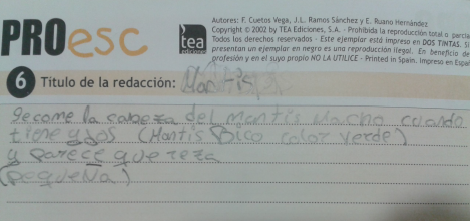 PROesc
tea
ediciones
Autores: F. Cuetos Vega, J.L. Ramos Sánchez y E. Ruano Hernández
Copyright © 2002 by TEA Ediciones, S.A. - Prohibida la reproducción total o parcia
Todos los derechos reservados - Este ejemplar está impreso en DOS TINTAS. Si
presentan un ejemplar en negro es una reproducción ilegal. En beneficio de
profesión y en el suyo propio NO LA UTILICE - Printed in Spain. Impreso en Españ
6 Título de la redacción: Mantis
se come la cabeza del mantis Macho cuando
tiene yjos (Mantis color verde)
y parece que reza
(pequeña)